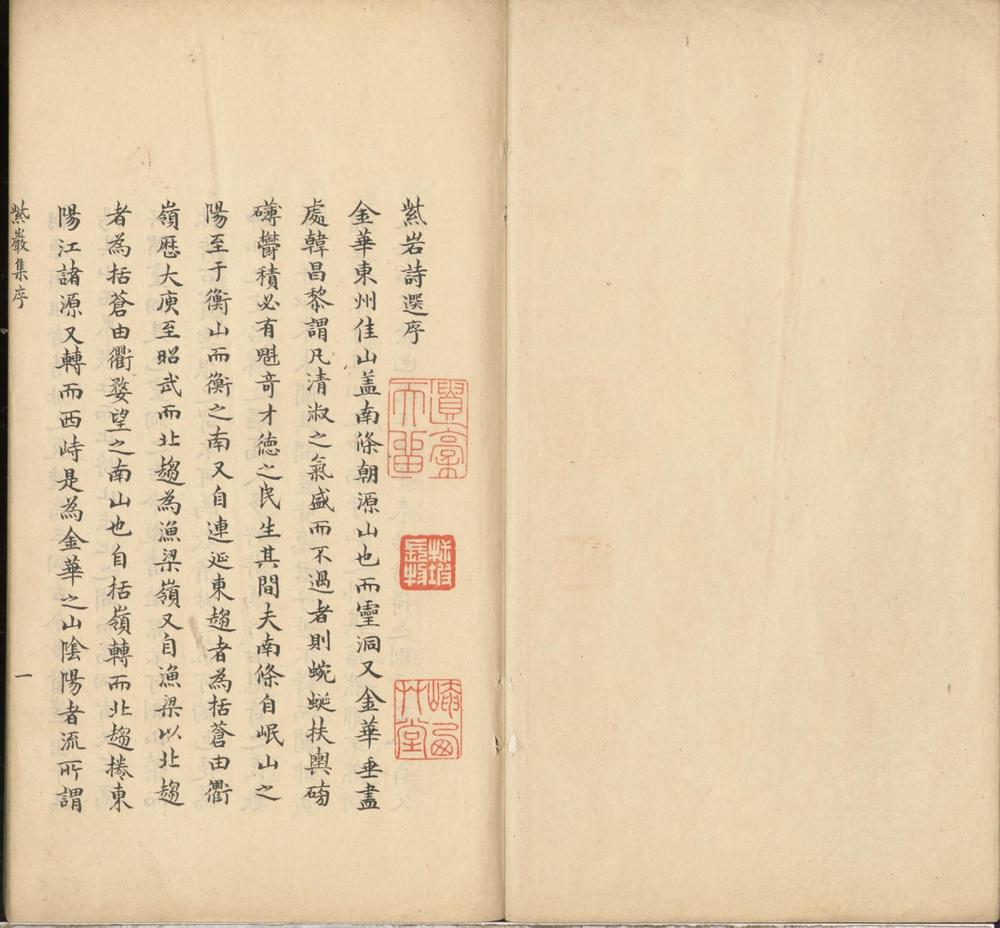 紫岩詩選序
金華東州佳山盖南條朝源山也而靈洞又金華垂盡
處韓昌黎謂凡清淑之氣盛而不過者則蜿蜒扶輿磅
礴鬱積必有魁竒才徳之民生其間夫南條自岷山之
陽至于衡山而衡之南又自連延東趨者為括蒼由衢
嶺歴大庾至昭武而北趨為漁梁嶺又自漁梁以北趨
者為括蒼由衢婺望之南山也自括嶺轉而北趨捲東
陽江諸源又轉而西峙是為金華之山隂陽者流所謂
紫巖集序
一